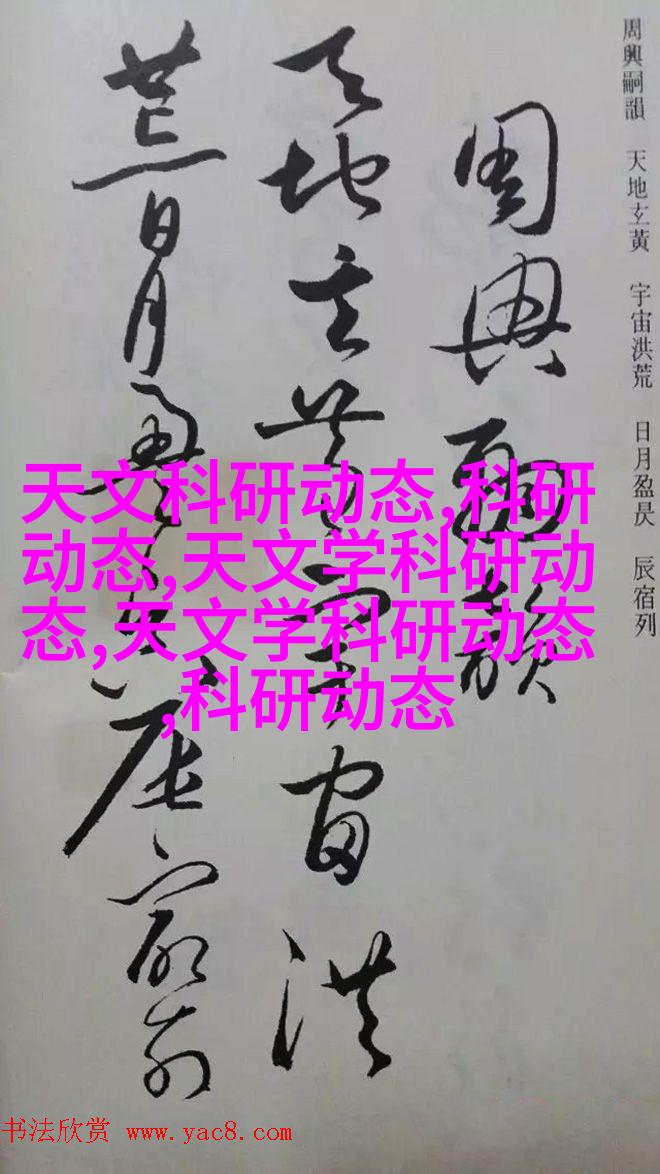 周興嗣韻 天地玄黃 宇宙洪荒 日月盈昃 辰宿列
周興嗣韻
天地玄黃宇宙洪
荒日月盈昃辰宿列
天文科研动态,科研
动态,天文学科研动
态,天文学科研动态
,科研动态
书法欣赏 www.yac8.com